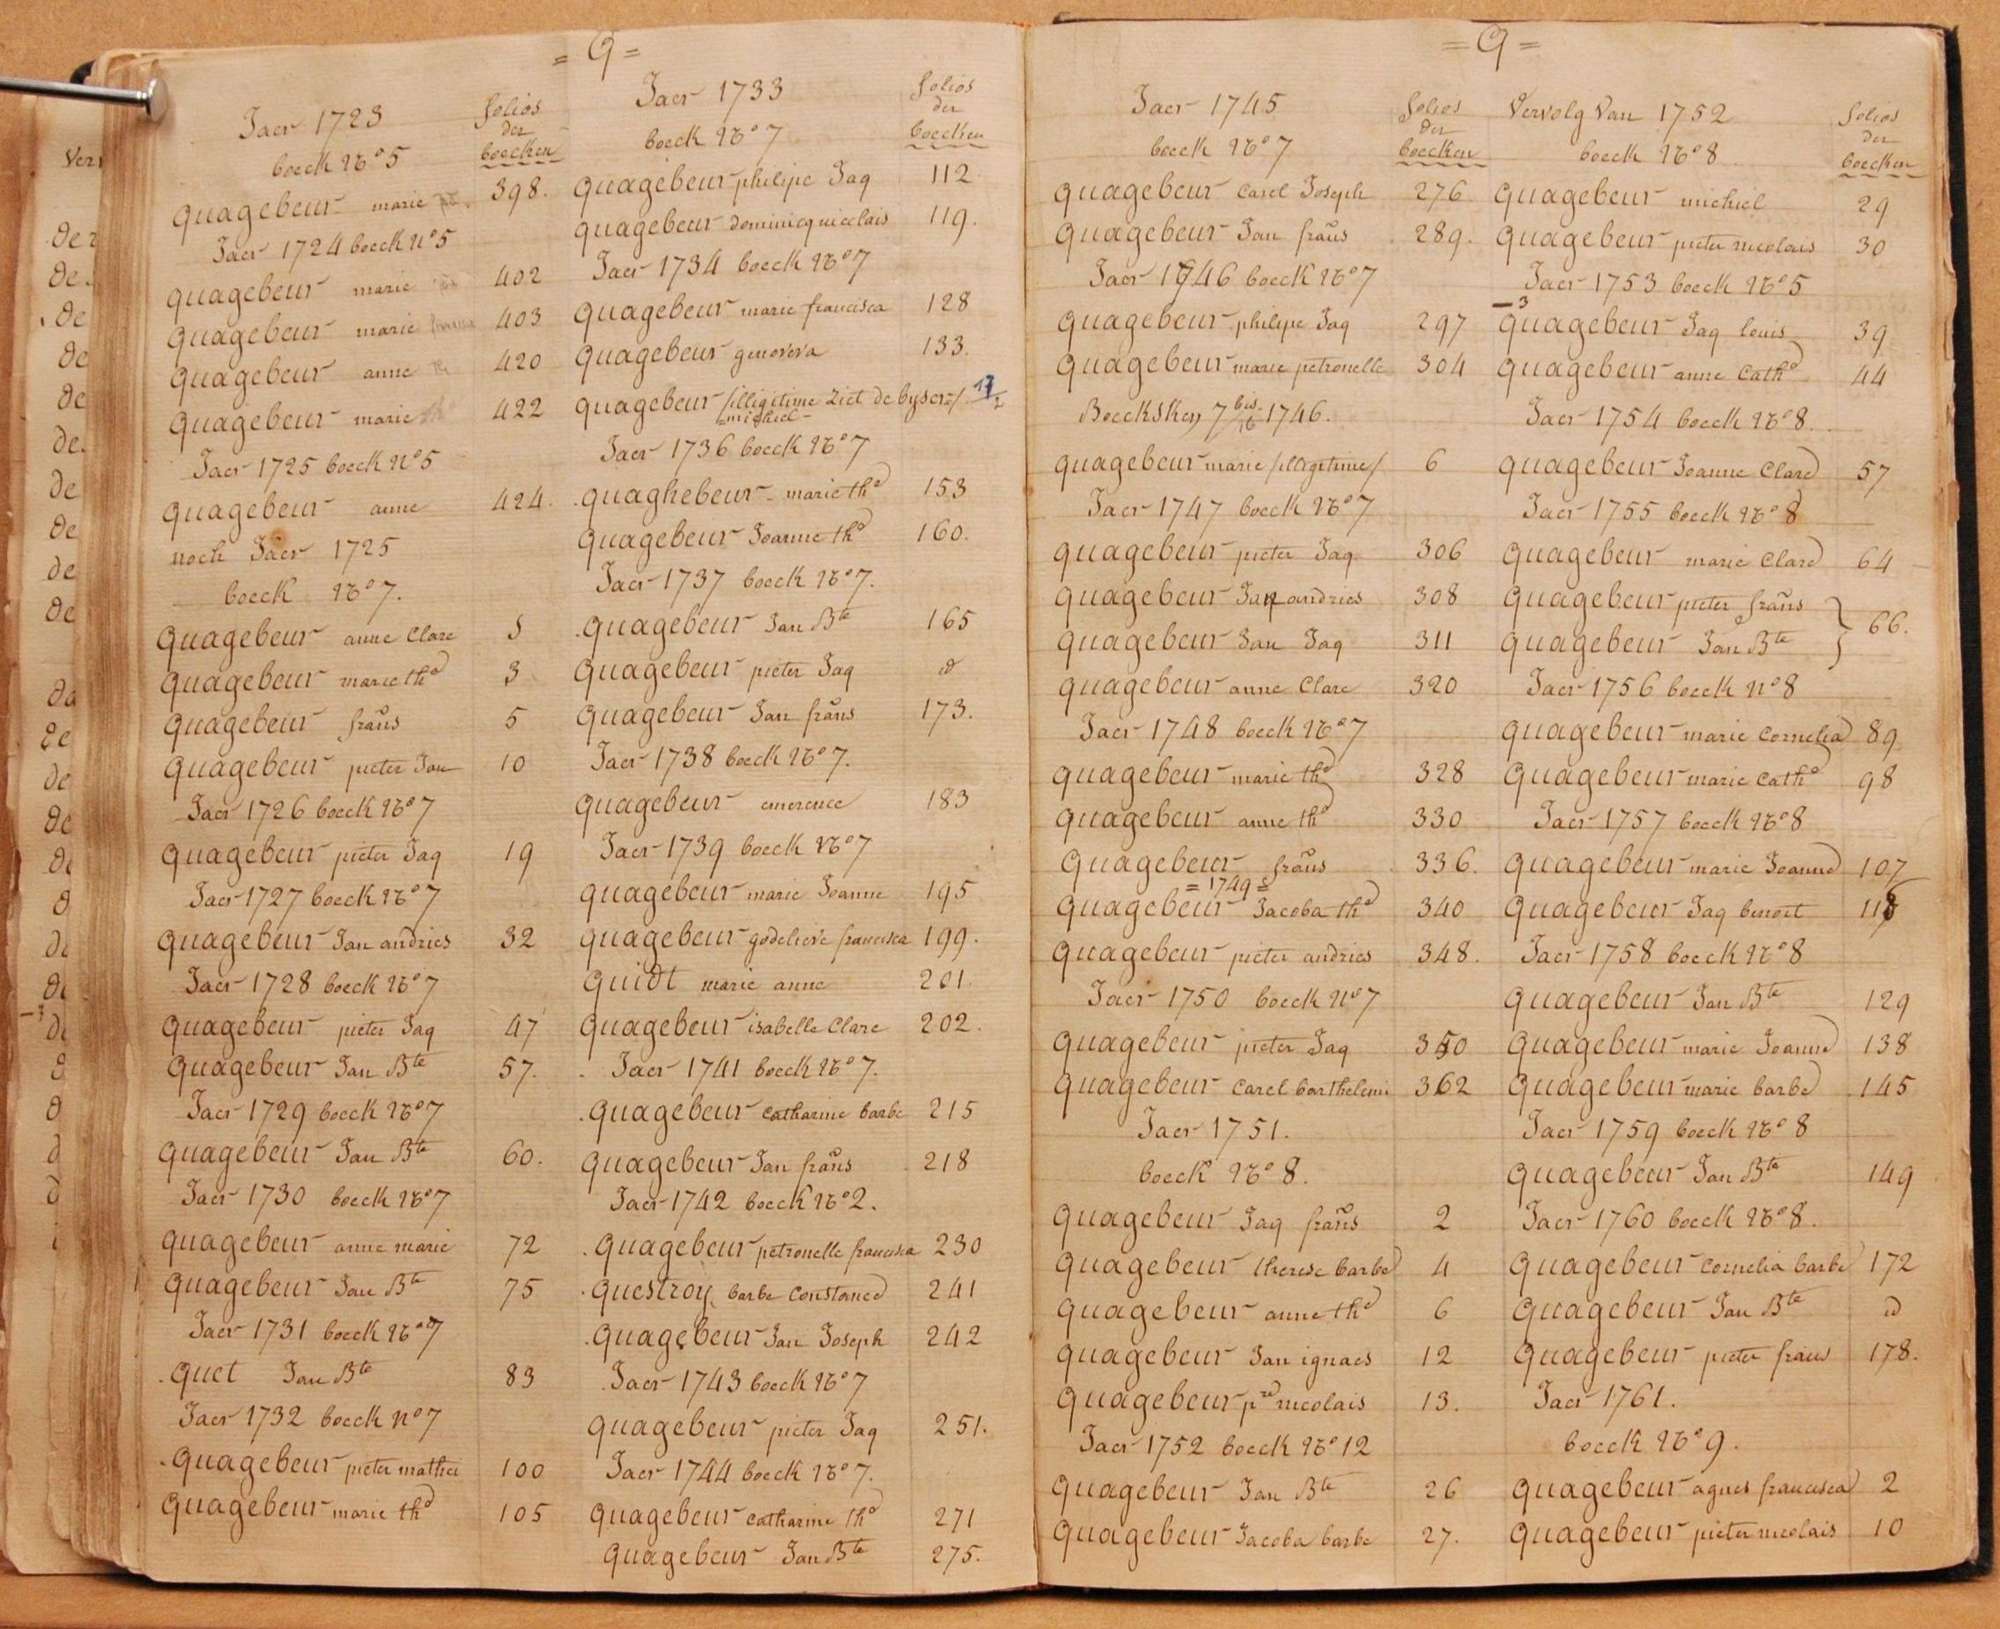 = Q =
Jaer 1723
folios
der
boecken
boeck No 5
quagebeur marie 398.
Jaer 1724 boeck No 5
quagebeur marie 402
quagebeur marie 403
quagebeur anne 420
quagebeur marie 422
Jaer 1725 boeck No 5
quagebeur anne 424.
noch Jaer 1725
boeck No 7.
quagebeur anne Clare
quagebeur marie thᵉ 3
quagebeur frañs 5
quagebeur pieter Jan 10
Jaer 1726 boeck No 7
quagebeur pieter Jaq 19
Jaer 1727 boeck No 7
quagebeur Jan andries 32
Jaer 1728 boeck No 7
quagebeur pieter Jaq 47
quagebeur Jan Bte 57.
Jaer 1729 boeck No 7
quagebeur Jan Bte 60.
Jaer 1730 boeck No 7
quagebeur anne marie 72
quagebeur Jan Bte 75
Jaer 1731 boeck No 7
quet Jan Bte 83
Jaer 1732 boeck No 7
quagebeur pieter mathei 100
quagebeur marie thᵉ 105
Jaer 1733
folios
der
boecken
boeck No 7
quagebeur philipe Jaq 112
quagebeur dominicq nicolais 119.
Jaer 1734 boeck No 7
quagebeur marie francisca 128
quagebeur genoveva 133.
quagebeur /illigitime Ziet de byser/
michiel
Jaer 1736 boeck No 7
quaghebeur marie thᵉ 153
quagebeur Joanne thᵉ 160.
Jaer 1737 boeck No 7.
quagebeur Jan Bte 165
quagebeur pieter Jaq d
quagebeur Jan frañs 173.
Jaer 1738 boeck No 7.
quagebeur emerence 183
Jaer 1739 boeck No 7
quagebeur marie Joanne 195
quagebeur godelieve francisca 199.
quidt marie anne 201.
quagebeur isabelle Clare 202.
Jaer 1741 boeck No 7.
quagebeur catharine barbe 215
quagebeur Jan frañs 218
Jaer 1742 boeck No 2.
quagebeur petronelle francisca 230
questroy barbe Constance 241
quagebeur Jan Joseph 242
Jaer 1743 boeck No 7
quagebeur pieter Jaq 251.
Jaer 1744 boeck No 7.
quagebeur catharine thᵉ 271
quagebeur Jan Bte 275.
= Q =
Jaer 1745
folios
der
boecken
boeck No 7
quagebeur Carel Joseph 276
quagebeur Jan frañs 289.
Jaer 1746 boeck No 7
quagebeur philipe Jaq 297
quagebeur marie petronelle 304
Boecksken 7 bis 1746.
quagebeur marie /illigitime/ 6
Jaer 1747 boeck No 7
quagebeur pieter Jaq 306
quagebeur Jan andries 308
quagebeur Jan Jaq 311
quagebeur anne Clare 320
Jaer 1748 boeck No 7
quagebeur marie thᵉ 328
quagebeur anne thᵉ 330
quagebeur frañs 336.
= 1749 =
quagebeur Jacoba thᵉ 340
quagebeur pieter andries 348.
Jaer 1750 boeck No 7
quagebeur pieter Jaq 350
quagebeur Carel barthelemi 362
Jaer 1751.
boeck No 8.
quagebeur Jaq frañs 2
quagebeur therese barbe 4
quagebeur anne thᵉ 6
quagebeur Jan ignaes 12
quagebeur pre nicolais 13.
Jaer 1752 boeck No 12
quagebeur Jan Bte 26
quagebeur Jacoba barbe 27.
Vervolg Van 1752
folios
der
boecken
boeck No 8
quagebeur michiel 29
quagebeur pieter nicolais 30
Jaer 1753 boeck No 5
quagebeur Jaq louis 39
quagebeur anne Cathᵉ 44
Jaer 1754 boeck No 8.
quagebeur Joanne Clare 57
Jaer 1755 boeck No 8
quagebeur marie Clare 64
quagebeur pieter frañs
quagebeur Jan Bte } 66.
Jaer 1756 boeck No 8
quagebeur marie Cornelia 89
quagebeur marie Cathᵉ 98
Jaer 1757 boeck No 8
quagebeur marie Joanne 107
quagebeur Jaq benoit
Jaer 1758 boeck No 8
quagebeur Jan Bte 129
quagebeur marie Joanne 138
quagebeur marie barbe 145
Jaer 1759 boeck No 8
quagebeur Jan Bte 149
Jaer 1760 boeck No 8.
quagebeur Cornelia barbe 172
quagebeur Jan Bte d
quagebeur pieter frans 178.
Jaer 1761.
boeck No 9.
quagebeur agnes francisca 2
quagebeur pieter nicolais 10